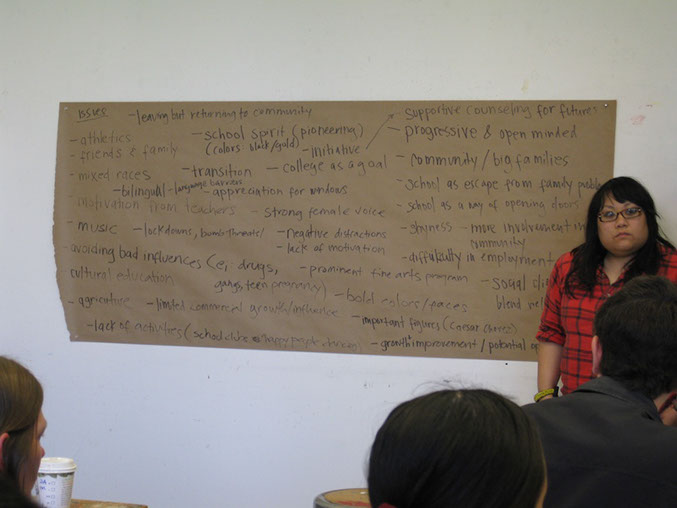 issues
- leaving but returning to community
- athletics
- friends & family
- mixed races
- bilingual - language barriers
motivation from teachers
- music
- avoiding bad influences (e.i. drugs,
gangs, teen pregnancy)
cultural education
- agriculture
- lack of activities (school clubs
- school spirit (pioneering)
(colors: black/gold)
- initiative
- transition
- college as a goal
- appreciation for windows
- strong female voice
- lockdowns, bomb threats/
- negative distractions
- lack of motivation
- prominent fine arts program
- bold colors/
- limited commercial growth/influence
- important figures (Caesar Chavez)
- growth improvement / potential
supportive counseling for futures
- progressive & open minded
- community / big families
- school as escape from family
- school as a way of opening doors
- shyness - more involvement in
community
- difficulty in employment
- social
blend